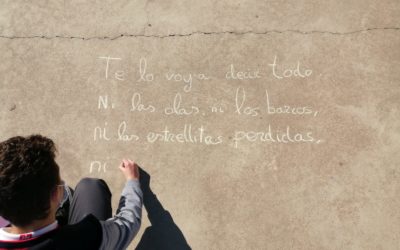 Te lo voy a decir todo.
Ni las olas, ni los barcos,
ni las estrellitas perdidas,
ni